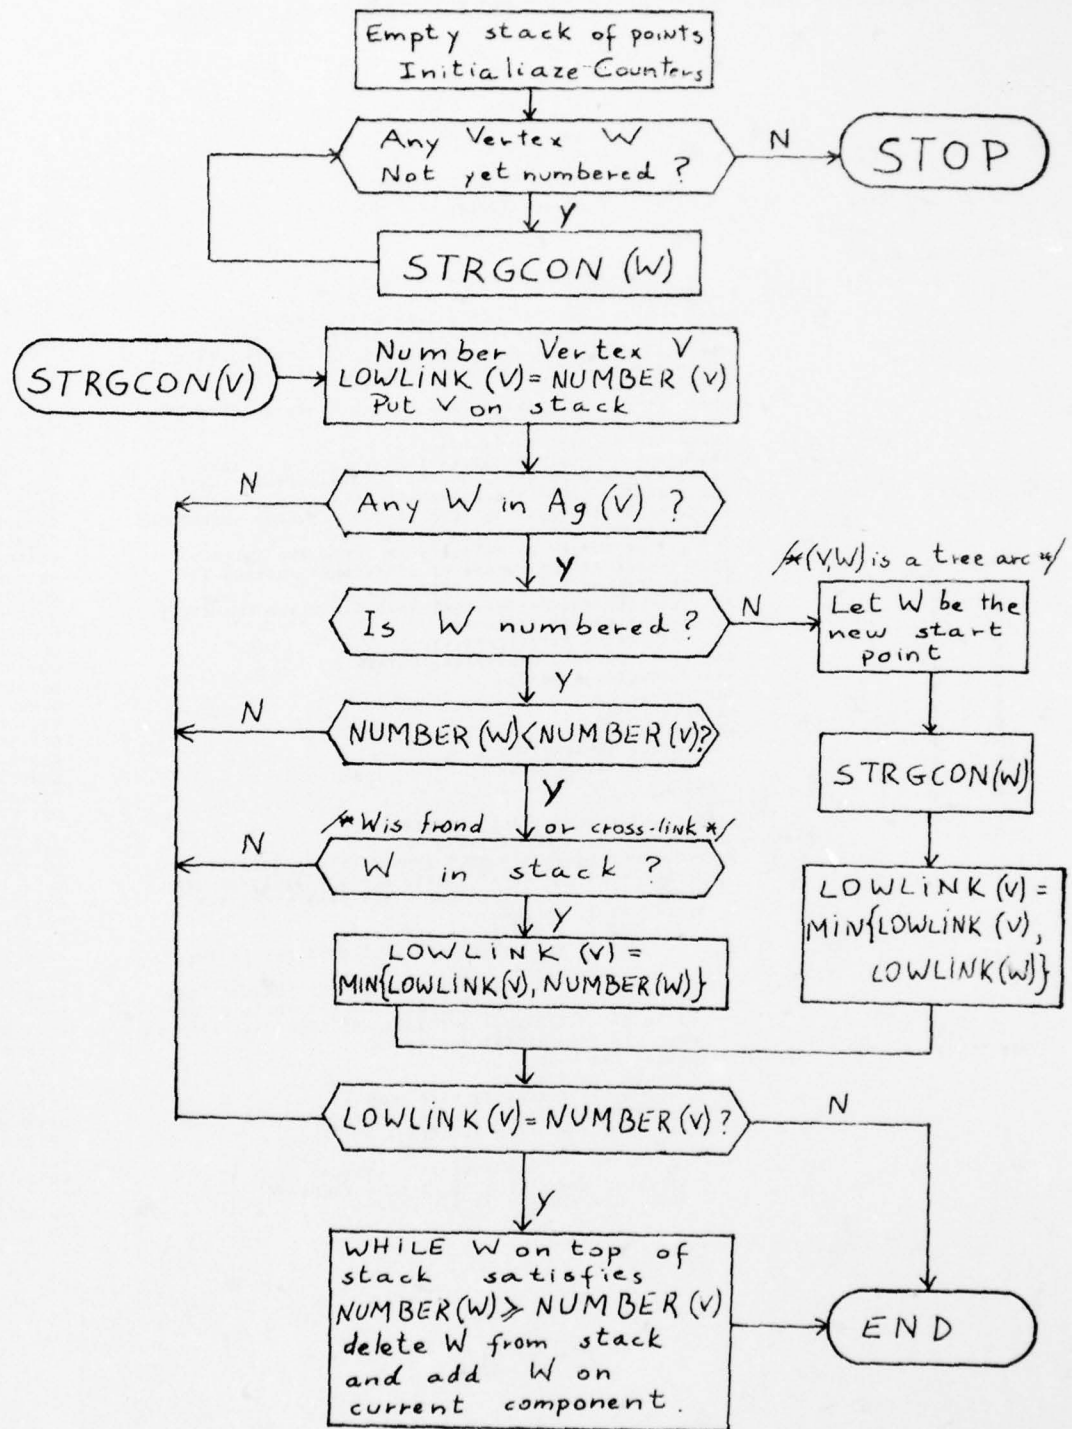 Empty stack of points
Initialiaze Counters
Any Vertex W
Not yet numbered ?
N
STOP
Y
STRGCON (W)
STRGCON(V)
Number Vertex V
LOWLINK (V) = NUMBER (V)
Put V on stack
N
Any W in Ag (V) ?
Y
/*(V,W) is a tree arc */
Is W numbered ?
N
Let W be the
new start
point
Y
N
NUMBER (W) < NUMBER (V)?
STRGCON(W)
Y
/* W is frond or cross-link */
N
W in stack ?
LOWLINK (V) =
MIN{LOWLINK (V),
LOWLINK(W)}
Y
LOWLINK (V) =
MIN{LOWLINK(V), NUMBER(W)}
LOWLINK(V) = NUMBER (V) ?
N
Y
WHILE W on top of
stack satisfies
NUMBER(W) ⩾ NUMBER (V)
delete W from stack
and add W on
current component.
END